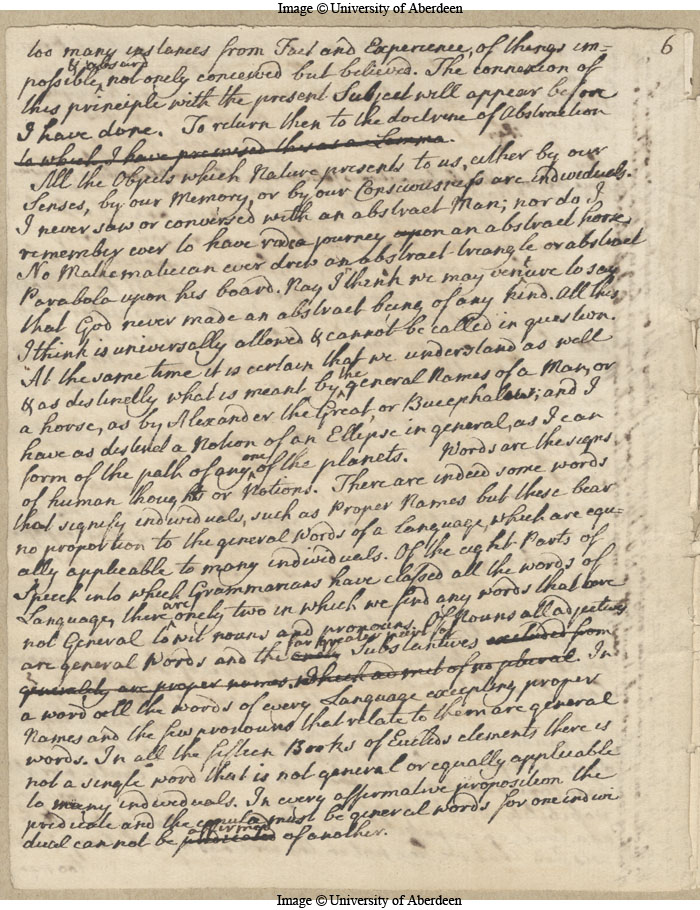 Image © University of Aberdeen
6
too many instances from Fact and Experience, of things im=
& absurd
possible, not onely conceived but believed. The connexion of
this principle with the present Subject will appear before
I have done. To return then to the doctrine of Abstraction
to which I have premised this as a Lemma.
All the Objects which Nature presents to us, either by our
Senses, by our Memory, or by our Consciousness are individuals.
I never saw or conversed with an abstract Man; nor do I
remember ever to have rode a journey upon an abstract horse
No Mathematician ever drew an abstract triangle or abstract
Parabola upon his board. Nay I think we may venture to say
that God never made an abstract being of any kind. All this
I think is universally allowed & cannot be called in question.
At the same time it is certain that we understand as well
& as distinctly what is meant by the general Names of a Man, or
a horse, as by Alexander the Great, or Bucephalus; and I
have as distinct a Notion of an Ellipse in general, as I can
form of the path of any one of the planets. Words are the signs
of human thought or Notions. There are indeed some words
that signify individuals, such as Proper Names but these bear
no proportion to the general Words of a Language, which are equ=
ally applicable to many individuals. Of the eight Parts of
Speech into which Grammarians have classed all the words of
Language, there are onely two in which we find any words that are
not General to wit nouns and pronouns. Of Nouns all adjectives
far greater part of
are general Words and the onely Substantives excluded from
generality are proper names, which admit of no plural. In
a word all the words of every Language excepting proper
Names and the few pronouns that relate to them are general
words. In all the fifteen Books of Euclids elements there is
not a single word that is not general or equally applicable
to many individuals. In every affirmative proposition the
predicate and the copula must be general words for one indivi
affirmed
dual can not be predicated of another.
Image © University of Aberdeen